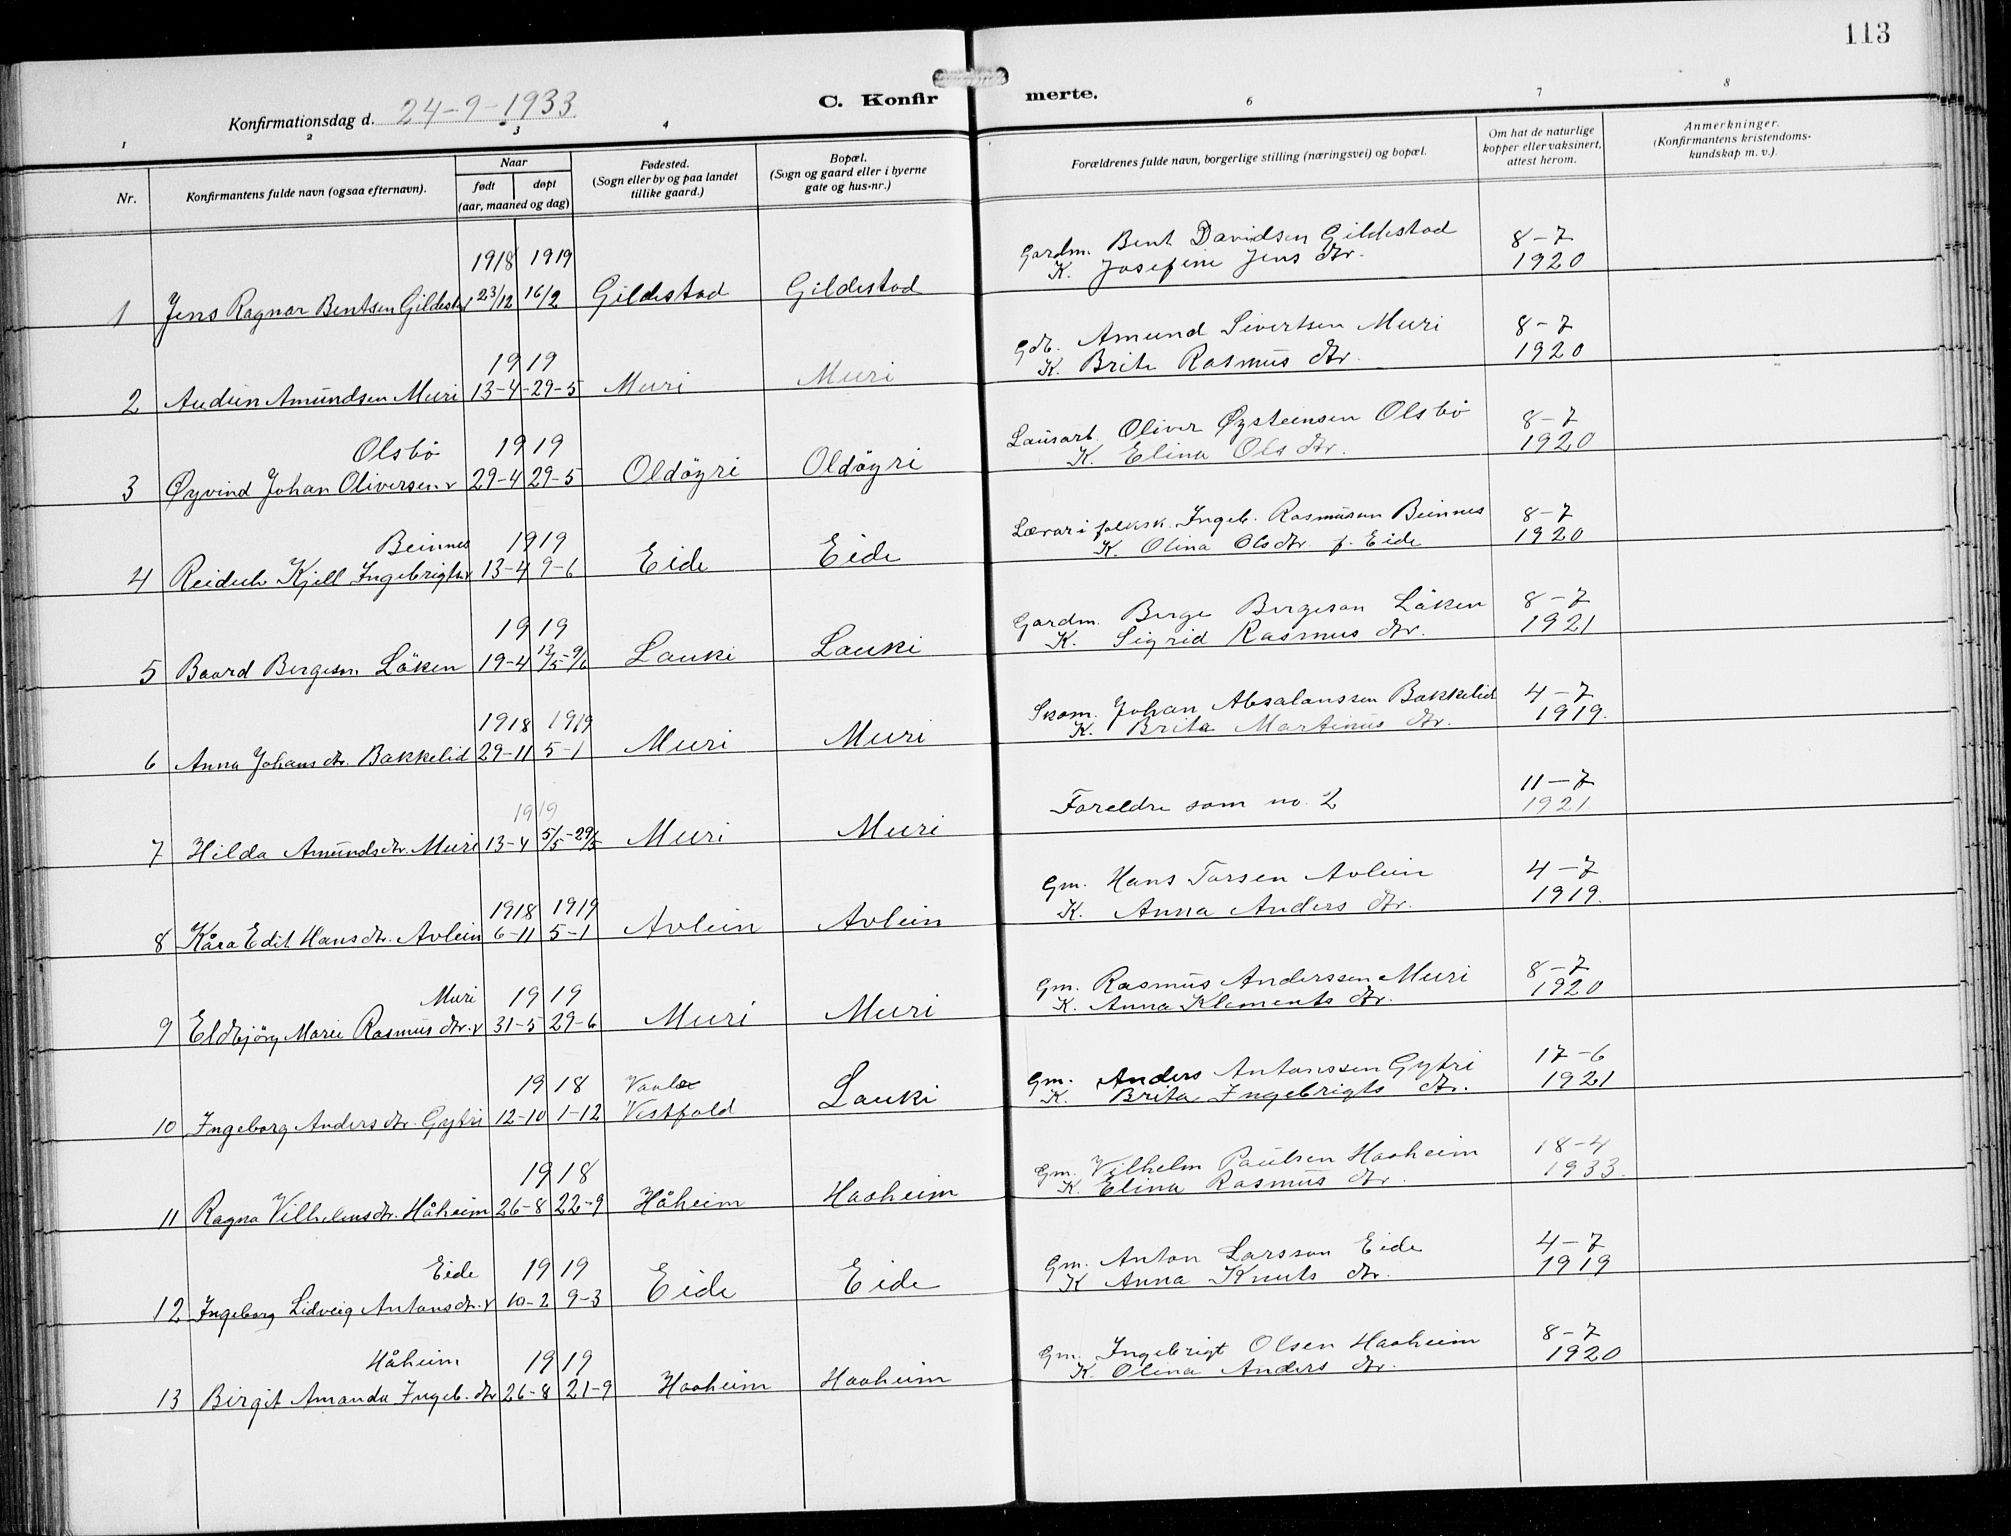 113
Konfirmationsdag d. 24-9-1933
C. Konfirmerte.
1 2 3 4 6 7 8
Nr.
Konfirmantens fulde navn (ogsaa efternavn).
Naar
født
døpt
(aar, maaned og dag)
Fødested.
(Sogn eller by og paa landet
tillike gaard.)
Bopæl.
(Sogn og gaard eller i byerne
gate og hus-nr.)
Forældrenes fulde navn, borgerlige stilling (næringsvei) og bopæl.
Om hat de naturlige
kopper eller vaksinert,
attest herom.
Anmerkninger.
(Konfirmantens kristendoms-
kundskap m. v.).
1918 1919 Gardm. Bent Davidsen Gildestad 8-7
1 Jens Ragnar Bentsen Gildestad 23/12 16/2 Gildestad Gildestad K. Josefine Jens dtr. 1920
1919 Gdb. Amund Sivertsen Muri 8-7
2 Audun Amundsen Muri 13-4 29-5 Muri Muri K. Brite Rasmus dtr. 1920
Olsbö 1919 Lausarb. Oliver Øysteinsen Olsbö 8-7
3 Øyvind Johan Oliversen 29-4 29-5 Oldöyri Oldöyri K. Elina Ols dtr. 1920
Beinnes 1919 Lærar i folkesk. Ingeb. Rasmusen Beinnes 8-7
4 Reiduh Kjell Ingebrigts 13-4 9-6 Eide Eide K. Olina Olsdtr. f. Eide 1920
1919 Gardm. Berge Bergeson Löken 8-7
5 Baard Bergeson Löken 19-4 13/5-9/6 Lauki Lauki K. Sigrid Rasmus dtr. 1921
1918 1919 Skom. Johan Absalonssen Bakkelid 4-7
6 Anna Johans dtr. Bakkelid 29-11 5-1 Muri Muri K. Brita Martinus dtr. 1919.
1919 11-7
7 Hilda Amundsdtr. Muri 13-4 5/5-29/5 Muri Muri Foreldre som no. 2 1921
1918 1919 Gm. Hans Tarsen Avlein 4-7
8 Kåra Edit Hansdtr. Avlein 6-11 5-1 Avlein Avlein K. Anna Anders dtr. 1919.
Muri 1919 Gm. Rasmus Anderssen Muri 8-7
9 Eldbjörg Marie Rasmus dtr. 31-5 29-6 Muri Muri K. Anna Klements dtr. 1920
1918 Vaale Gm. Anders Antonssen Gytri 17-6
10 Ingeborg Anders dtr. Gytri 12-10 1-12 Vestfold Lauki K. Brita Ingebrigts dtr. 1921
1918 Gm. Vilhelm Paulsen Haaheim 18-4
11 Ragna Vilhelmsdtr. Håheim 26-8 22-9 Håheim Haaheim K. Elina Rasmus dtr. 1933.
Eide 1919 Gm. Anton Larsson Eide 4-7
12 Ingeborg Lidveig Antonsdtr. 10-2 9-3 Eide Eide K Anna Knuts dtr. 1919
Håheim 1919 Gm. Ingebrigt Olsen Haaheim 8-7
13 Birgit Amanda Ingeb. dtr 26-8 21-9 Haaheim Haaheim K. Olina Anders dtr. 1920